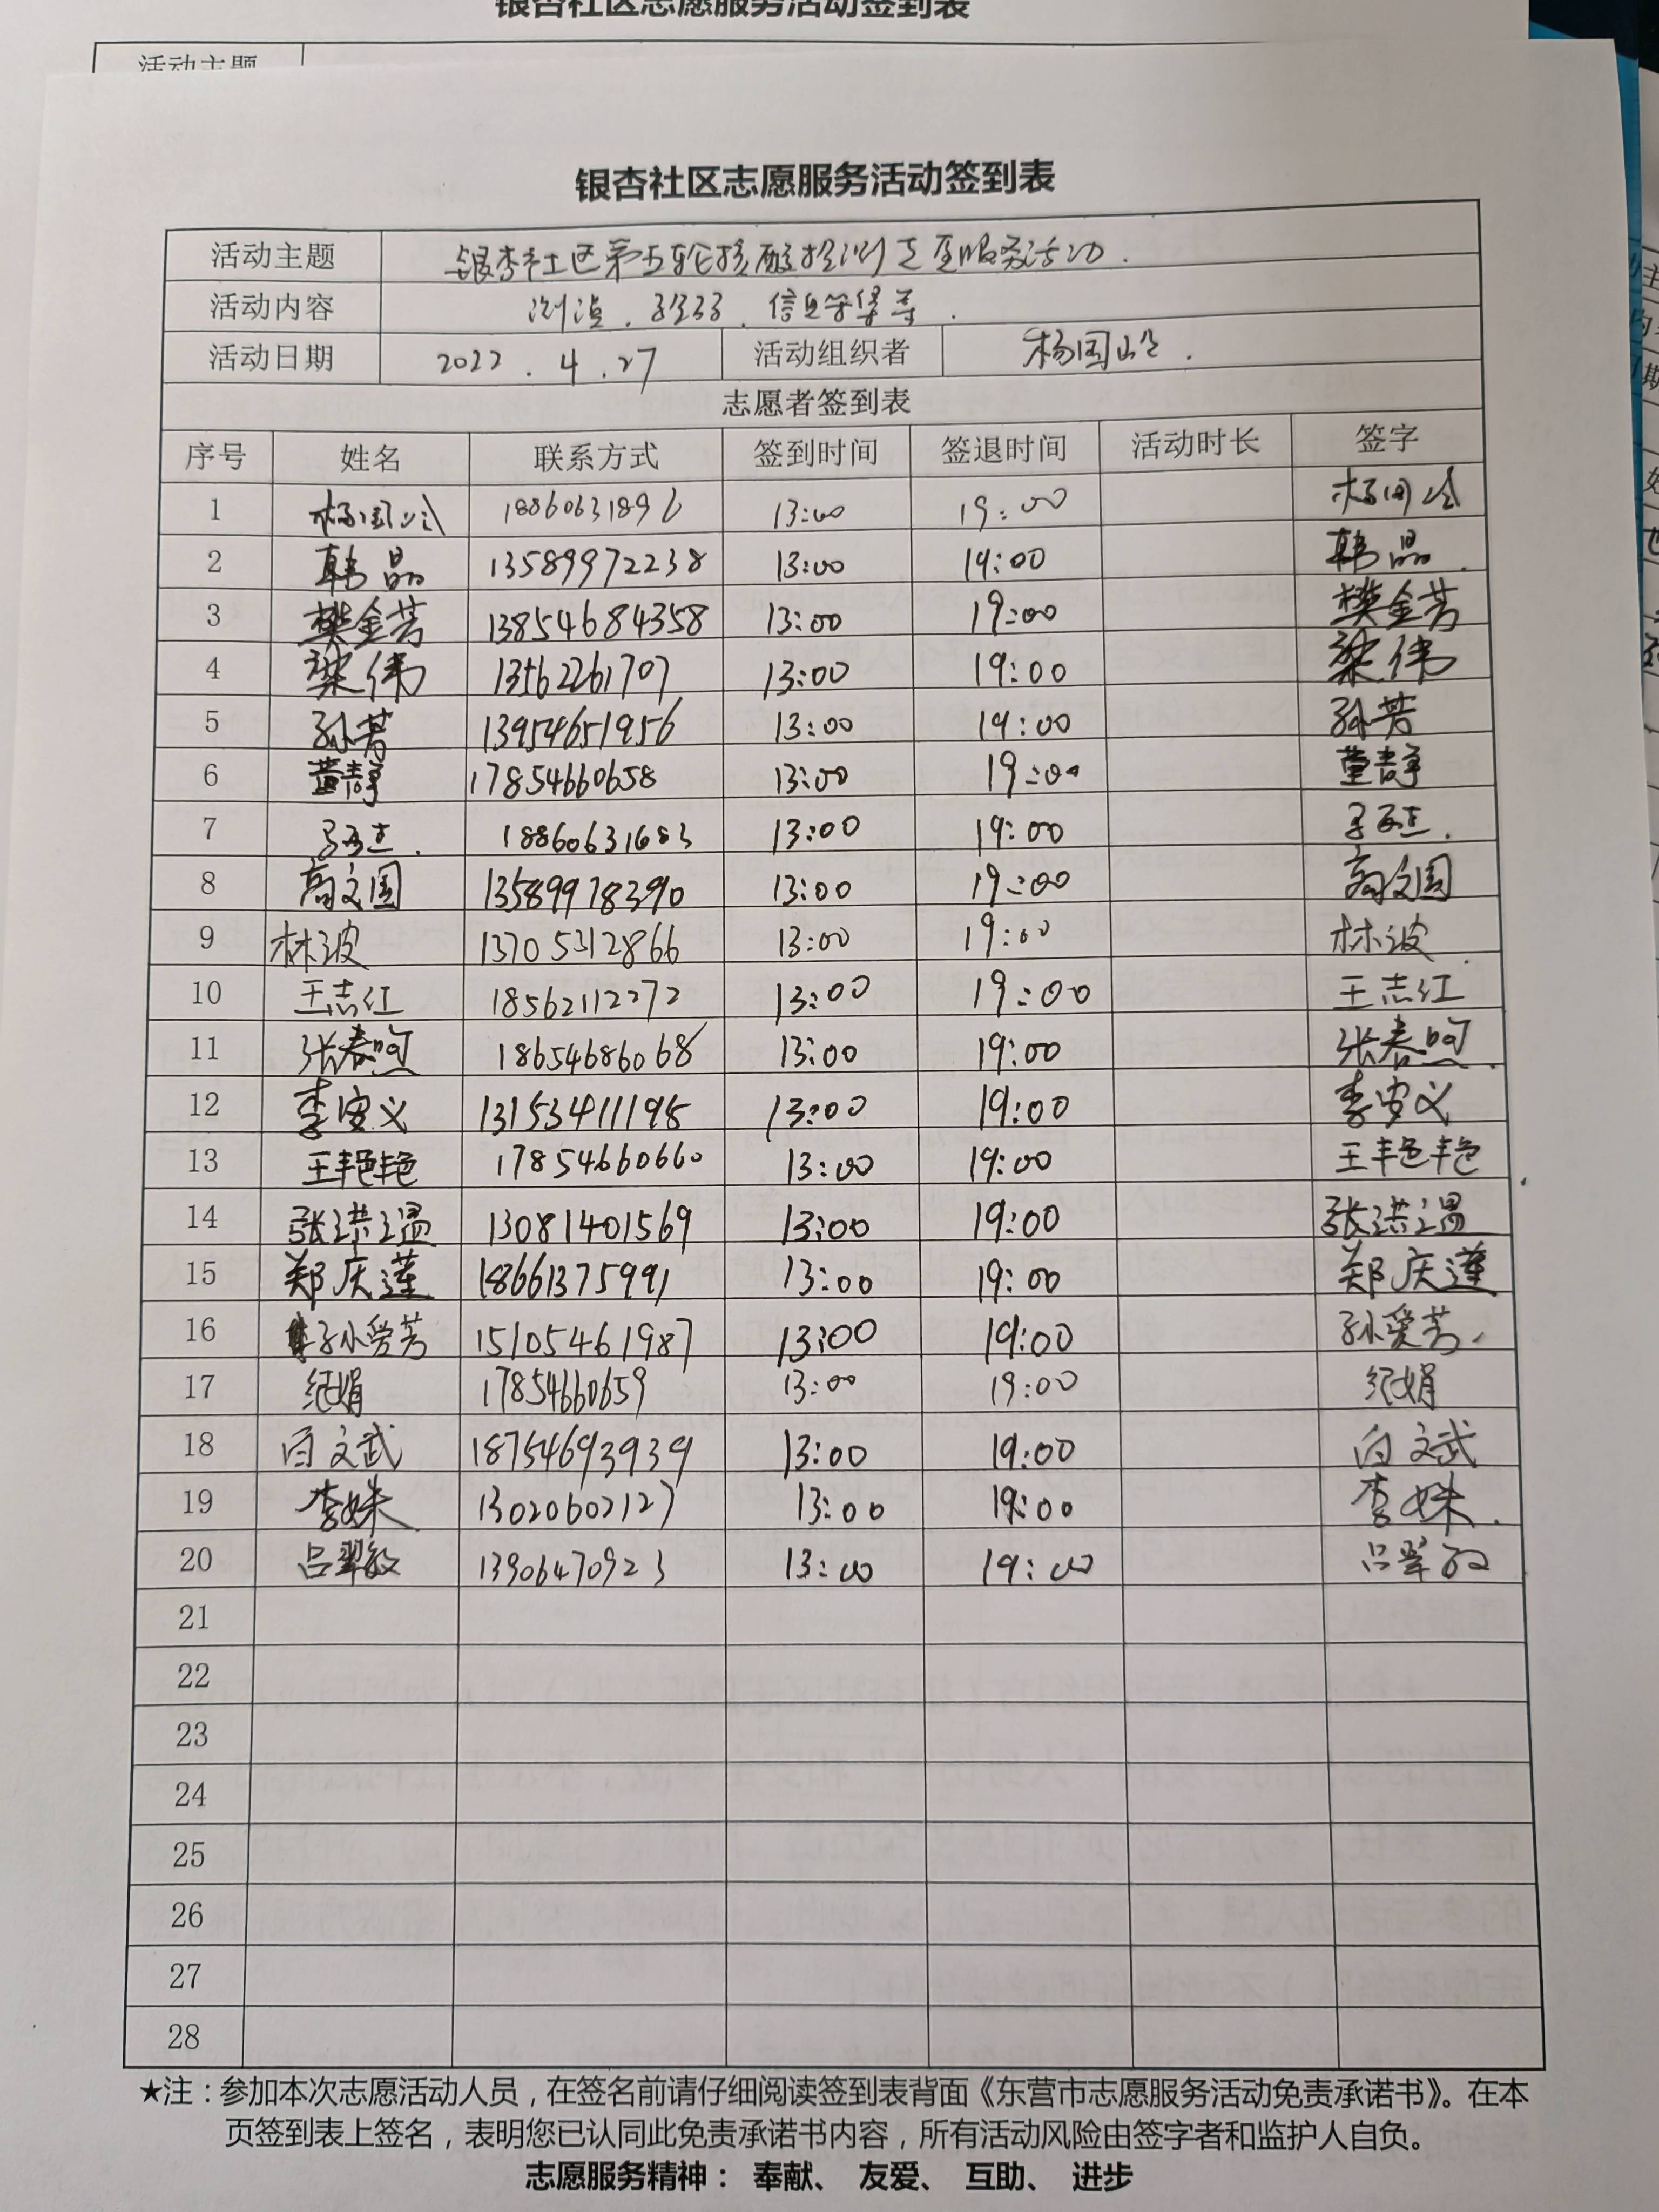 银杏社区志愿服务活动签到表
活动主题
银杏社区志愿服务活动签到表
活动主题 银杏社区第五轮核酸检测志愿服务活动.
活动内容 测温、扫码、信息登录等.
活动日期 2022.4.27 活动组织者 杨国
志愿者签到表
序号 姓名 联系方式 签到时间 签退时间 活动时长 签字
1 杨国 18860631896 13:00 19:00 杨国
2 韩晶 13589972238 13:00 19:00 韩晶
3 樊金芳 13854684358 13:00 19:00 樊金芳
4 梁伟 13562261707 13:00 19:00 梁伟
5 孙芳 13954651956 13:00 19:00 孙芳
6 董靜 17854660658 13:00 19:00 董靜
7 18860631683 13:00 19:00
8 高文国 13589978390 13:00 19:00 高文国
9 林波 13705312866 13:00 19:00 林波
10 王志红 18562112272 13:00 19:00 王志红
11 张春 18654686068 13:00 19:00 张春
12 李安义 13153411195 13:00 19:00 李安义
13 王艳艳 17854660660 13:00 19:00 王艳艳
14 张洪温 13081401569 13:00 19:00 张洪温
15 郑庆莲 18661375991 13:00 19:00 郑庆莲
16 孙爱芳 15105461987 13:00 19:00 孙爱芳
17 纪娟 17854660659 13:00 19:00 纪娟
18 白文武 18754693939 13:00 19:00 白文武
19 李姝 13020602127 13:00 19:00 李姝
20 吕翠敏 13906470923 13:00 19:00 吕翠敏
21
22
23
24
25
26
27
28
★注：参加本次志愿活动人员，在签名前请仔细阅读签到表背面《东营市志愿服务活动免责承诺书》。在本
页签到表上签名，表明您已认同此免责承诺书内容，所有活动风险由签字者和监护人自负。
志愿服务精神： 奉献、 友爱、 互助、 进步